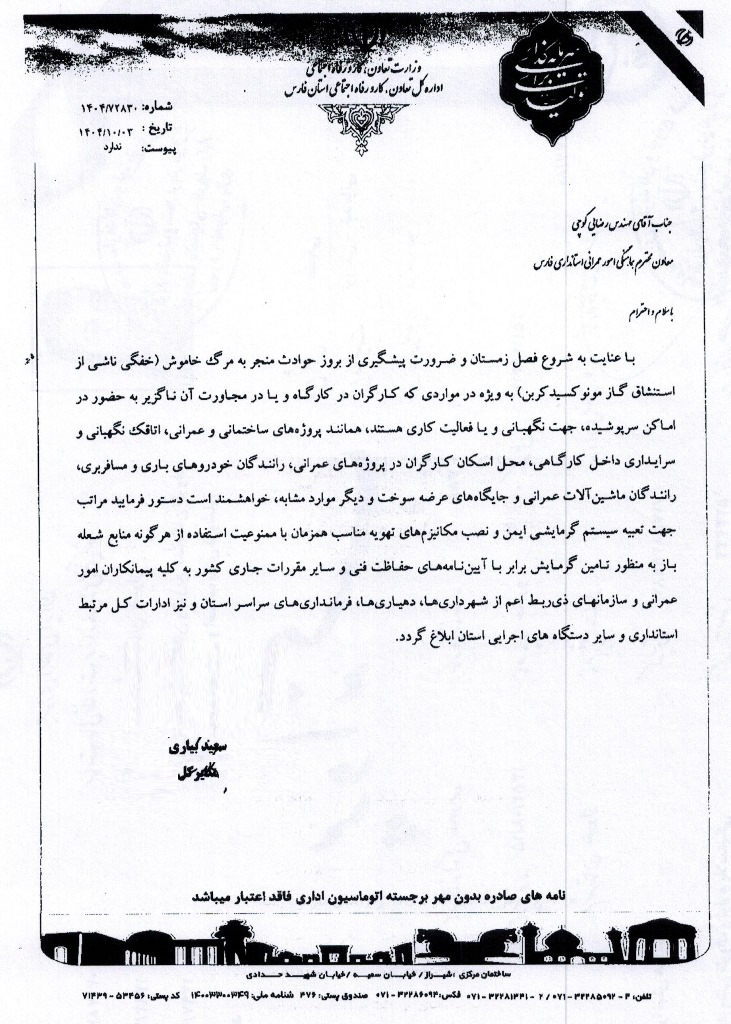 سرمایه‌گذاری برای تولید
وزارت تعاون، کار و رفاه اجتماعی
اداره کل تعاون، کار و رفاه اجتماعی استان فارس
شماره: ۱۴۰۴/۷۲۸۳۰
تاریخ: ۱۴۰۴/۱۰/۰۳
پیوست: ندارد
جناب آقای مهندس رضایی کوچی
معاون محترم هماهنگی امور عمرانی استانداری فارس
با سلام و احترام
با عنایت به شروع فصل زمستان و ضرورت پیشگیری از بروز حوادث منجر به مرگ خاموش (خفگی ناشی از
استنشاق گاز مونوکسیدکربن) به ویژه در مواردی که کارگران در کارگاه و یا در مجاورت آن ناگزیر به حضور در
اماکن سرپوشیده، جهت نگهبانی و یا فعالیت کاری هستند، همانند پروژه‌های ساختمانی و عمرانی، اتاقک نگهبانی و
سرایداری داخل کارگاهی، محل اسکان کارگران در پروژه‌های عمرانی، رانندگان خودروهای باری و مسافربری،
رانندگان ماشین‌آلات عمرانی و جایگاه‌های عرضه سوخت و دیگر موارد مشابه، خواهشمند است دستور فرمایید مراتب
جهت تعبیه سیستم گرمایشی ایمن و نصب مکانیزم‌های تهویه مناسب همزمان با ممنوعیت استفاده از هرگونه منابع شعله
باز به منظور تامین گرمایش برابر با آیین‌نامه‌های حفاظت فنی و سایر مقررات جاری کشور به کلیه پیمانکاران امور
عمرانی و سازمانهای ذی‌ربط اعم از شهرداری‌ها، دهیاری‌ها، فرمانداری‌های سراسر استان و نیز ادارات کل مرتبط
استانداری و سایر دستگاه های اجرایی استان ابلاغ گردد.
سعید کیاری
مدیرکل
نامه های صادره بدون مهر برجسته اتوماسیون اداری فاقد اعتبار میباشد
ساختمان مرکزی :شیراز / خیابان سمیه /خیابان شهید حدادی
تلفن: ۴ - ۳۲۲۸۵۰۹۲ - ۰۷۱ / ۲ - ۳۲۲۸۱۳۴۱ - ۰۷۱ فکس: ۳۲۲۸۶۰۹۴ - ۰۷۱ صندوق پستی: ۴۷۶ شناسه ملی: ۱۴۰۰۳۳۰۰۳۴۹ کد پستی: ۵۳۴۵۶ - ۷۱۴۳۹